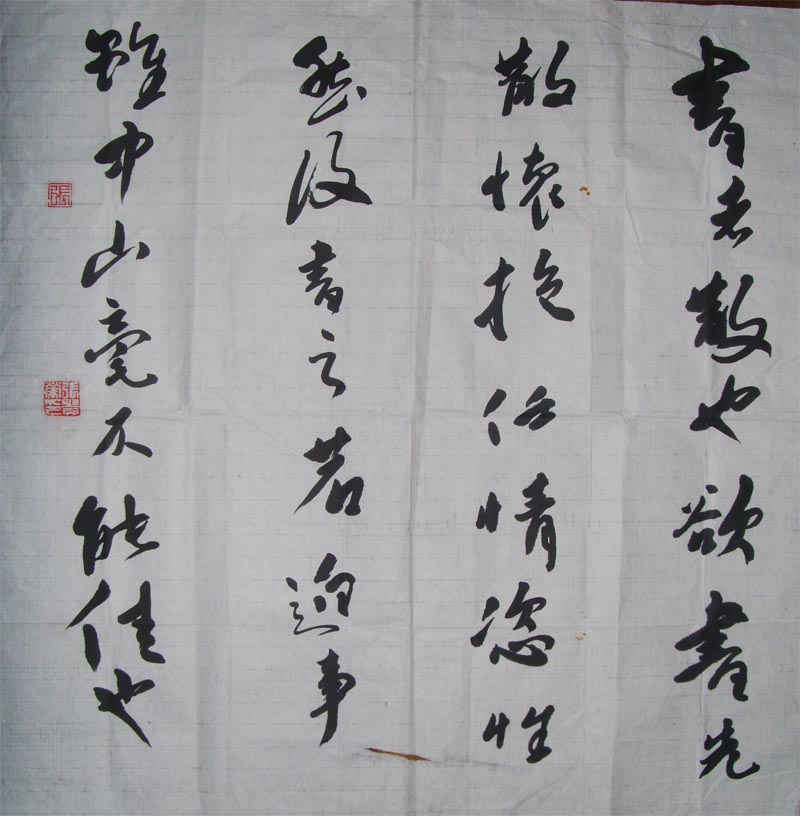 書者散也欲書先
散懷抱任情恣性
然後書之若迫事
雖中山毫不能佳也
張